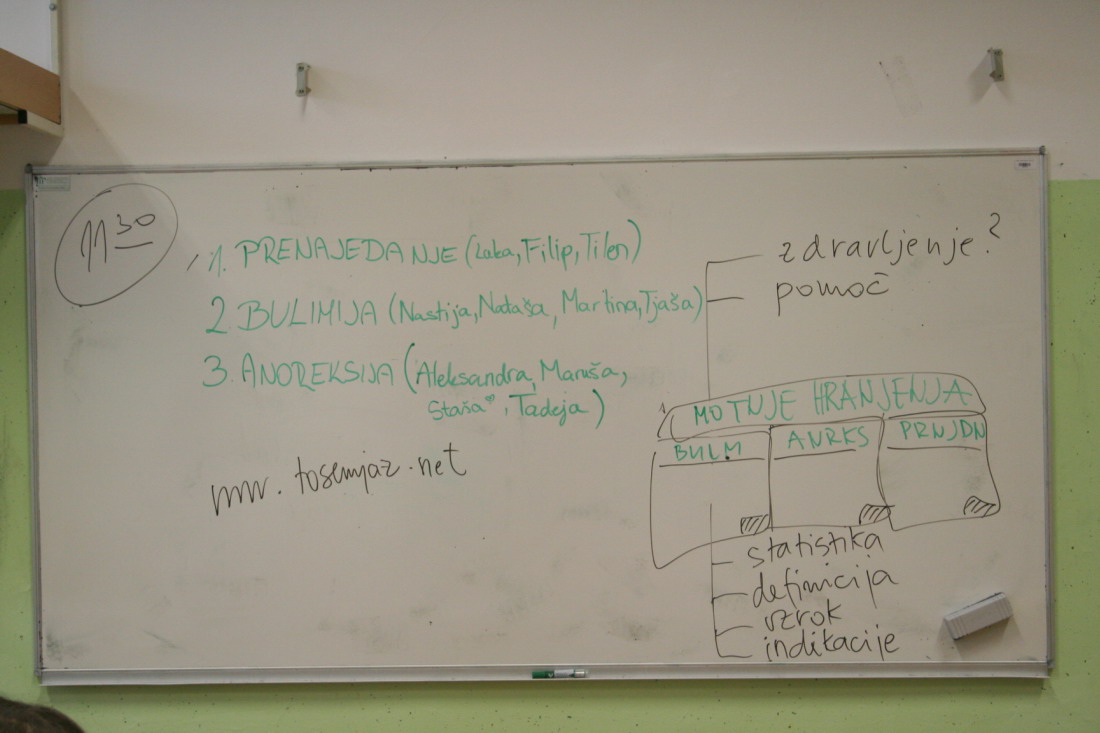 11 30
1. PRENAJEDANJE (Laba, Filip, Tilen)
2. BULIMIJA (Nastija, Nataša, Martina, Tjaša)
3. ANOREKSIJA (Aleksandra, Maruša,
Staša♥, Tadeja)
www.tosemjaz.net
zdravljenje?
pomoč
MOTNJE HRANJENJA
BULM
ANRKS
PRNJDN
statistika
definicija
vzrok
indikacije